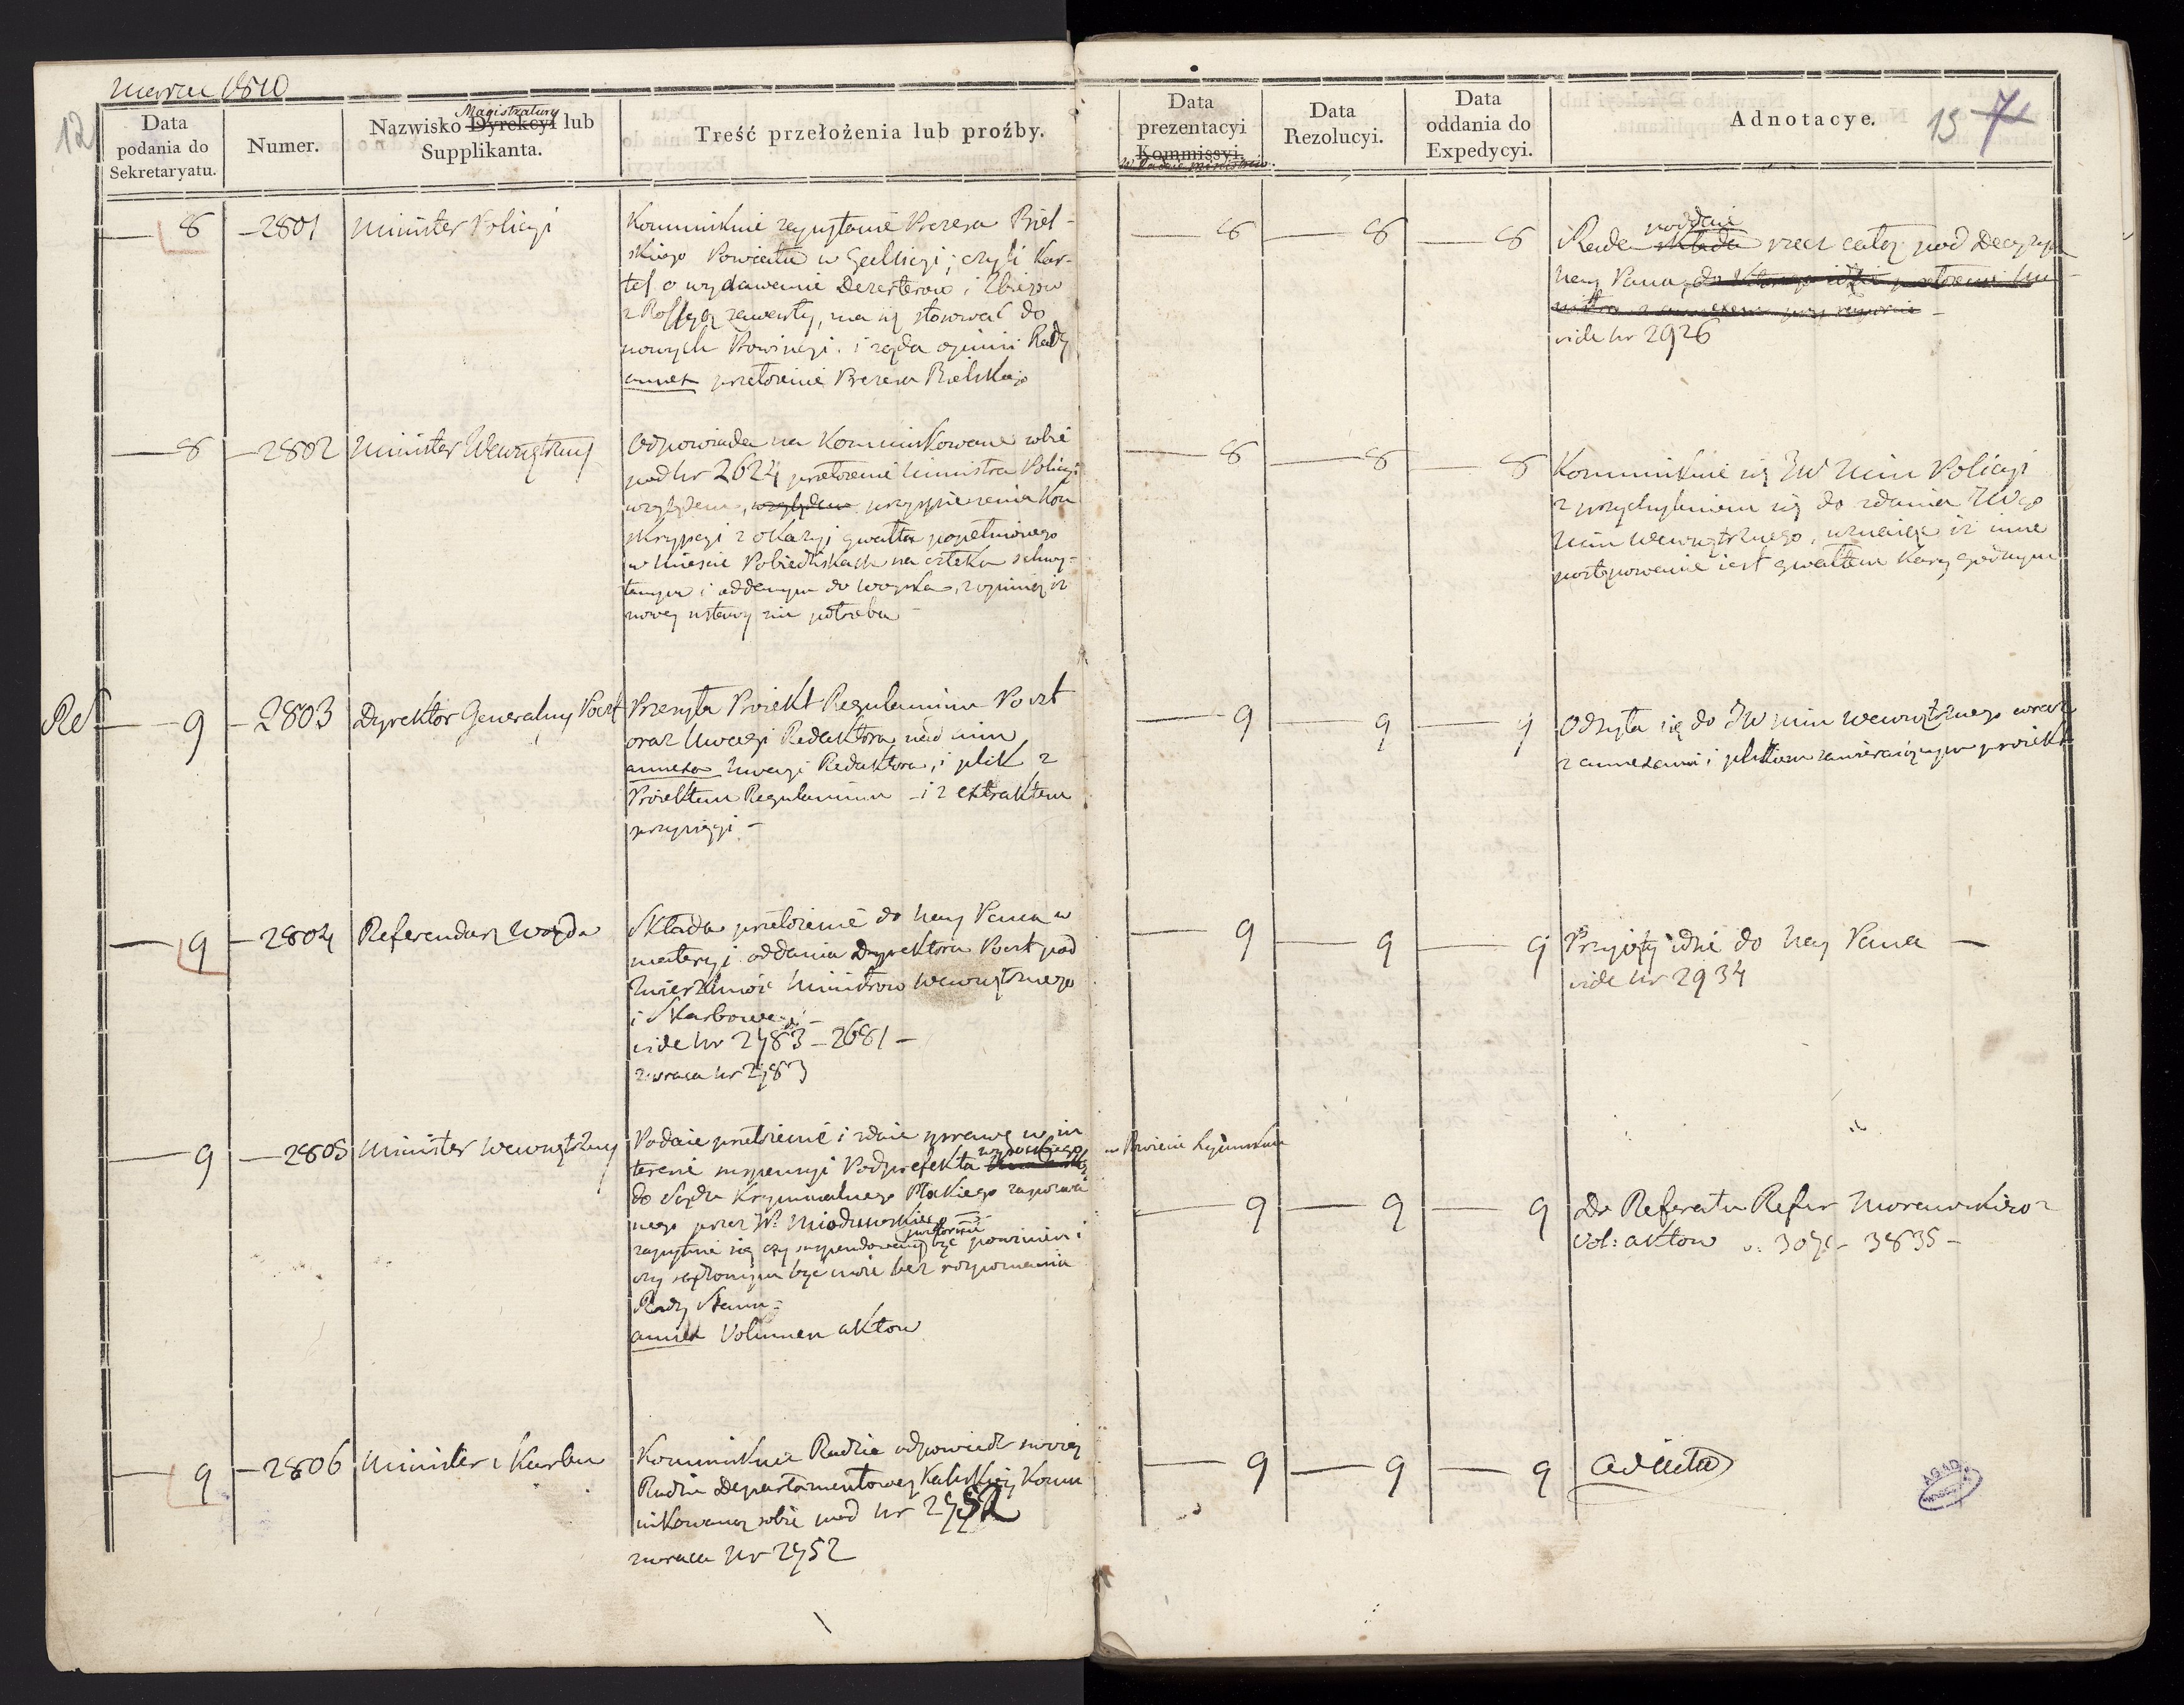 Marzec 1810
12
Data podania do Sekretaryatu.
Numer.
Nazwisko Dyrekcyi Magistratury lub Supplikanta.
Treść przełożenia lub proźby.
Data prezentacyi Kommissyi. w Radzie Ministrów.
Data Rezolucyi.
Data oddania do Expedycyi.
Adnotacye.
15 7
8 2801 Minister Policyi
Kommunikuie zapytanie Prezesa Biel-
skiego Powiatu w Gallicyi; czyli Kar-
tel o wydawanie Dezerterow i Zbiegow
z Rossyą zawarty, ma się stosować do
nowych Prowincyi. i żąda opinii Rady
annex przełożenie Prezesa Bielskiego
8 8 8
Rada składa poddaie rzecz całą pod Decyzyą
Nay Pana,
vide Nr 2926
8 2802 Minister Wewnętrzny
Odpowiada na Kommunikowane sobie
pod Nr 2624 przełożenie Ministra Policyi
względem, względem przyspieszenia Kon
skrypcyi z okazyi gwałtu popełnionego
w Mieście Pobiedziskach na człeku schwy-
tanym i oddanym do woyska, z opinią iż
nowey ustawy nie potrzeba
8 8 8
Kommunikuie się JW Min Policyi
z przychyleniem się do zdania JWgo
Min Wewnętrznego, uznaiąc iż inne
postępowanie iest gwałtem kary godnym
Ref
9 2803 Dyrektor Generalny Poczt
Przesyła Proiekt Regulaminu Poczt
oraz Uwagi Redaktora nad nim
annexa Uwagi Redaktora, i plik z
Proiektem Regulaminu - i z extraktem
przysięgi -
9 9 9
Odsyła się do JW Min Wewnętrznego wraz
z annexami i plikiem zawieraiącym proiekt
9 2804 Referendarz Woyda
Składa przełożenie do Nay Pana w
materyi oddania Dyrektora Poczt pod
Zwierzchność Ministrow Wewnętrznego
i Skarbowego -
vide Nr 2783 - 2681 -
zwraca Nr 2783
9 9 9
Przyięty idzie do Nay Pana -
vide Nr 2934
9 2805 Minister Wewnętrzny
Podaie przełożenie i zdaie sprawę w in
teresie suspensyi Podprefekta w Powiecie
do Sądu Kryminalnego Płockiego zapozwa
nego przez W. Mioduskiego -
zapytuie się czy suspendowany być powinien i
czy sądzonym być może bez rozpoznania
Rady Stanu -
annex Volumen aktow
9 9 9
Do Referatu Refer Morawskiego z
Vol: aktow v. 3835 -
9 2806 Minister Skarbu
Kommunikuie Radzie odpowiedź swoią
Radzie Departamentowey Kaliskiey Kom
nikowaney sobie pod Nr 2752
zwraca Nr 2752
9 9 9
ad acta
AGAD